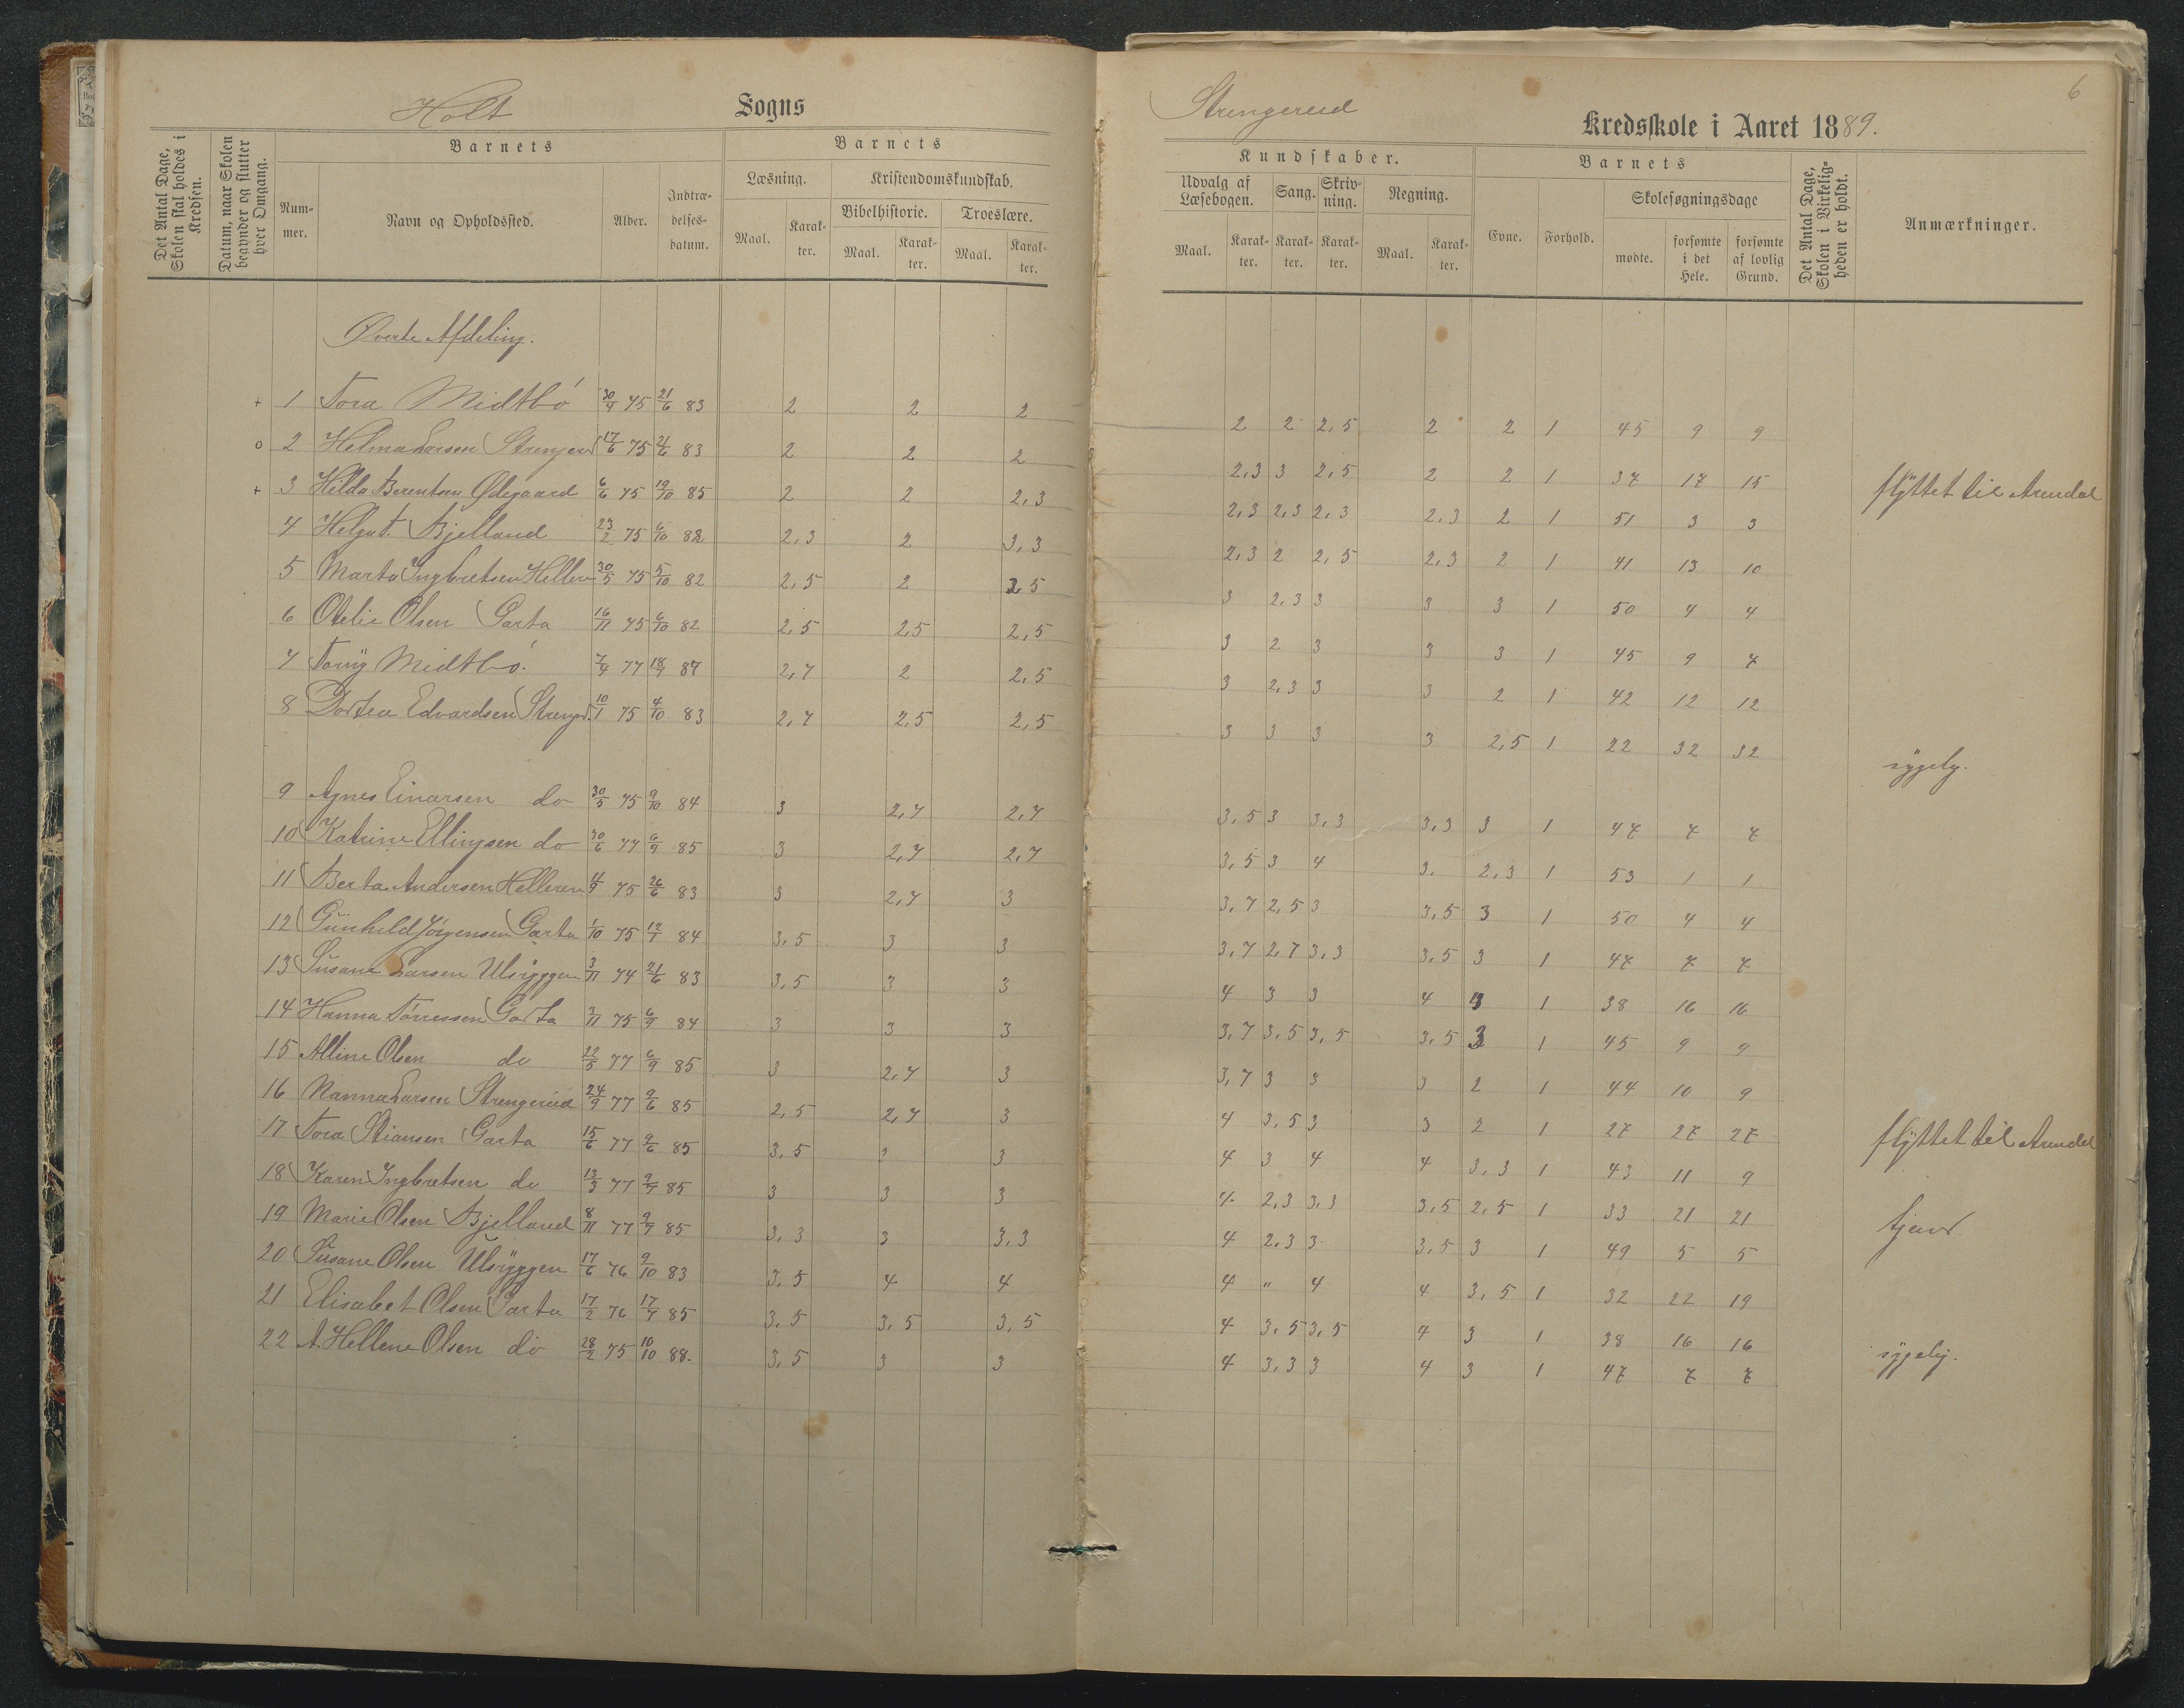 Holt Sogns
Det Antal Dage, Skolen skal holdes i Kredsen.
Datum, naar Skolen begynder og slutter hver Omgang.
Barnets
Num-
mer.
Navn og Opholdssted.
Alder.
Indtræ-
delses-
datum.
Barnets
Læsning.
Kristendomskundskab.
Bibelhistorie. Troeslære.
Maal. Karak-
ter.
Maal. Karak-
ter.
Maal. Karak-
ter.
Øverste Afdeling.
+ 1 Tora Midtbö 30/9 75 21/6 83 2 2 2
o 2 Helma Larsen Strenger 17/6 75 21/6 83 2 2 2
+ 3 Hilda Berentsen Ødegaard 6/6 75 19/10 85 2 2 2,3
4 Helga T. Bjelland 23/2 75 6/10 82 2,3 2 3,3
5 Marta Ingbretsen Helleren 30/5 75 5/10 82 2,5 2 2,5
6 Otelie Olsen Garta 16/11 75 6/10 82 2,5 2,5 2,5
7 Torny Midtbö. 7/4 77 18/9 87 2,7 2 2,5
8 Dortea Edvardsen Strenger. 10/1 75 4/10 83 2,7 2,5 2,5
9 Agnes Einarsen do 30/5 75 9/10 84 3 2,7 2,7
10 Katrine Ellingsen do 30/6 77 6/9 85 3 2,7 2,7
11 Berta Andersen Helleren 4/9 75 26/6 83 3 2,7 3
12 Gunhild Jörgensen Garta 1/10 75 12/7 84 3,5 3 3
13 Susane Larsen Ulsryggen 3/11 74 21/6 83 3,5 3 3
14 Hanna Törressen Garta 2/11 75 6/9 84 3 3 3
15 Alline Olsen do 22/5 77 6/9 85 3 2,7 3
16 Nanna Larsen Strengereid 24/9 77 9/6 85 2,5 2,7 3
17 Tora Stiansen Garta 15/6 77 9/6 85 3,5 3 3
18 Karen Ingbretsen do 13/3 77 9/7 85 3 3 3
19 Marie Olsen Bjelland 8/11 77 9/7 85 3,3 3 3,3
20 Susane Olsen Ulsryggen 17/6 76 9/10 83 3,5 4 4
21 Elisabet Olsen Garta 17/2 76 17/7 85 3,5 3,5 3,5
22 A. Hellene Olsen do 28/2 75 10/10 88. 3,5 3 3
6
Strengereid Kredsskole i Aaret 1889.
Kundskaber.
Udvalg af
Læsebogen.
Sang. Skriv-
ning.
Regning.
Maal. Karak-
ter.
Karak-
ter.
Karak-
ter.
Maal. Karak-
ter.
Barnets
Evne. Forhold.
Skolesøgningsdage
mødte.
forsømte
i det
Hele.
forsømte
af lovlig
Grund.
Det Antal Dage, Skolen i Virkelig-
heden er holdt.
Anmærkninger.
2 2 2,5 2 2 1 45 9 9
2,3 3 2,5 2 2 1 37 17 15 flyttet til Arendal
2,3 2,3 2,3 2,3 2 1 51 3 3
2,3 2 2,5 2,3 2 1 41 13 10
3 2,3 3 3 3 1 50 4 4
3 2 3 3 3 1 45 9 7
3 2,3 3 3 2 1 42 12 12
3 3 3 3 2,5 1 22 32 32 sygelig.
3,5 3 3,3 3,3 3 1 47 7 7
3,5 3 4 3. 2,3 1 53 1 1
3,7 2,5 3 3,5 3 1 50 4 4
3,7 2,7 3,3 3,5 3 1 47 7 7
4 3 3 4 3 1 38 16 16
3,7 3,5 3,5 3,5 3 1 45 9 9
3,7 3 3 3 2 1 44 10 9
4 3,5 3 3 2 1 27 27 27 flyttet til Arendal
4 3 4 4 3,3 1 43 11 9
4 2,3 3,3 3,5 2,5 1 33 21 21 tjener
4 2,3 3 3,5 3 1 49 5 5
4 " 4 4 3,5 1 32 22 19
4 3,5 3,5 4 3 1 38 16 16 sygelig.
4 3,3 3 4 3 1 47 7 7